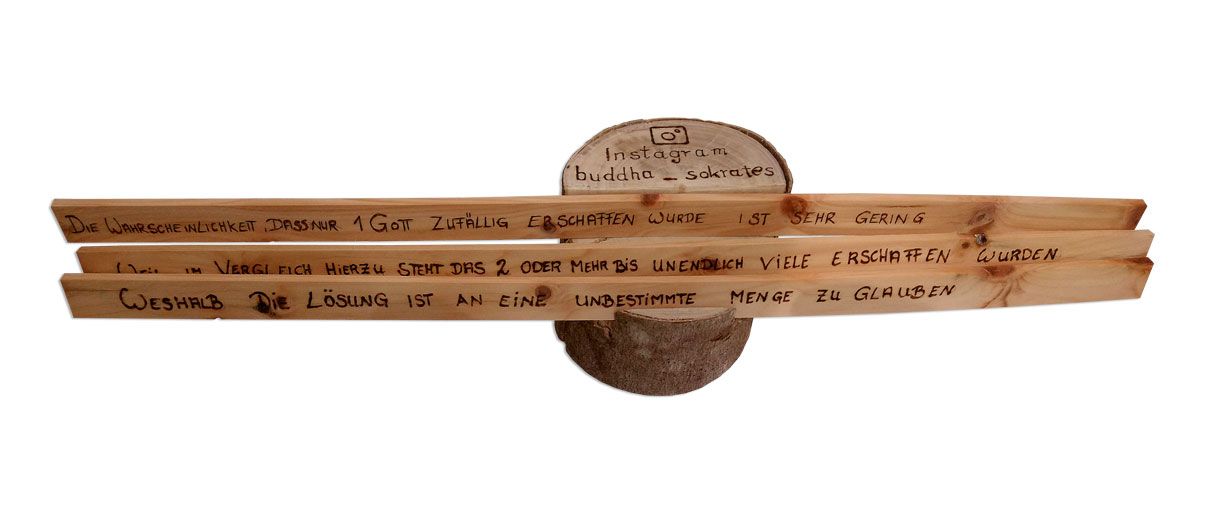 Instagram
buddha_sokrates
DIE WAHRSCHEINLICHKEIT, DASS NUR 1 GOTT ZUFÄLLIG ERSCHAFFEN WURDE IST SEHR GERING
WEIL IM VERGLEICH HIERZU STEHT DAS 2 ODER MEHR BIS UNENDLICH VIELE ERSCHAFFEN WURDEN
WESHALB DIE LÖSUNG IST AN EINE UNBESTIMMTE MENGE ZU GLAUBEN